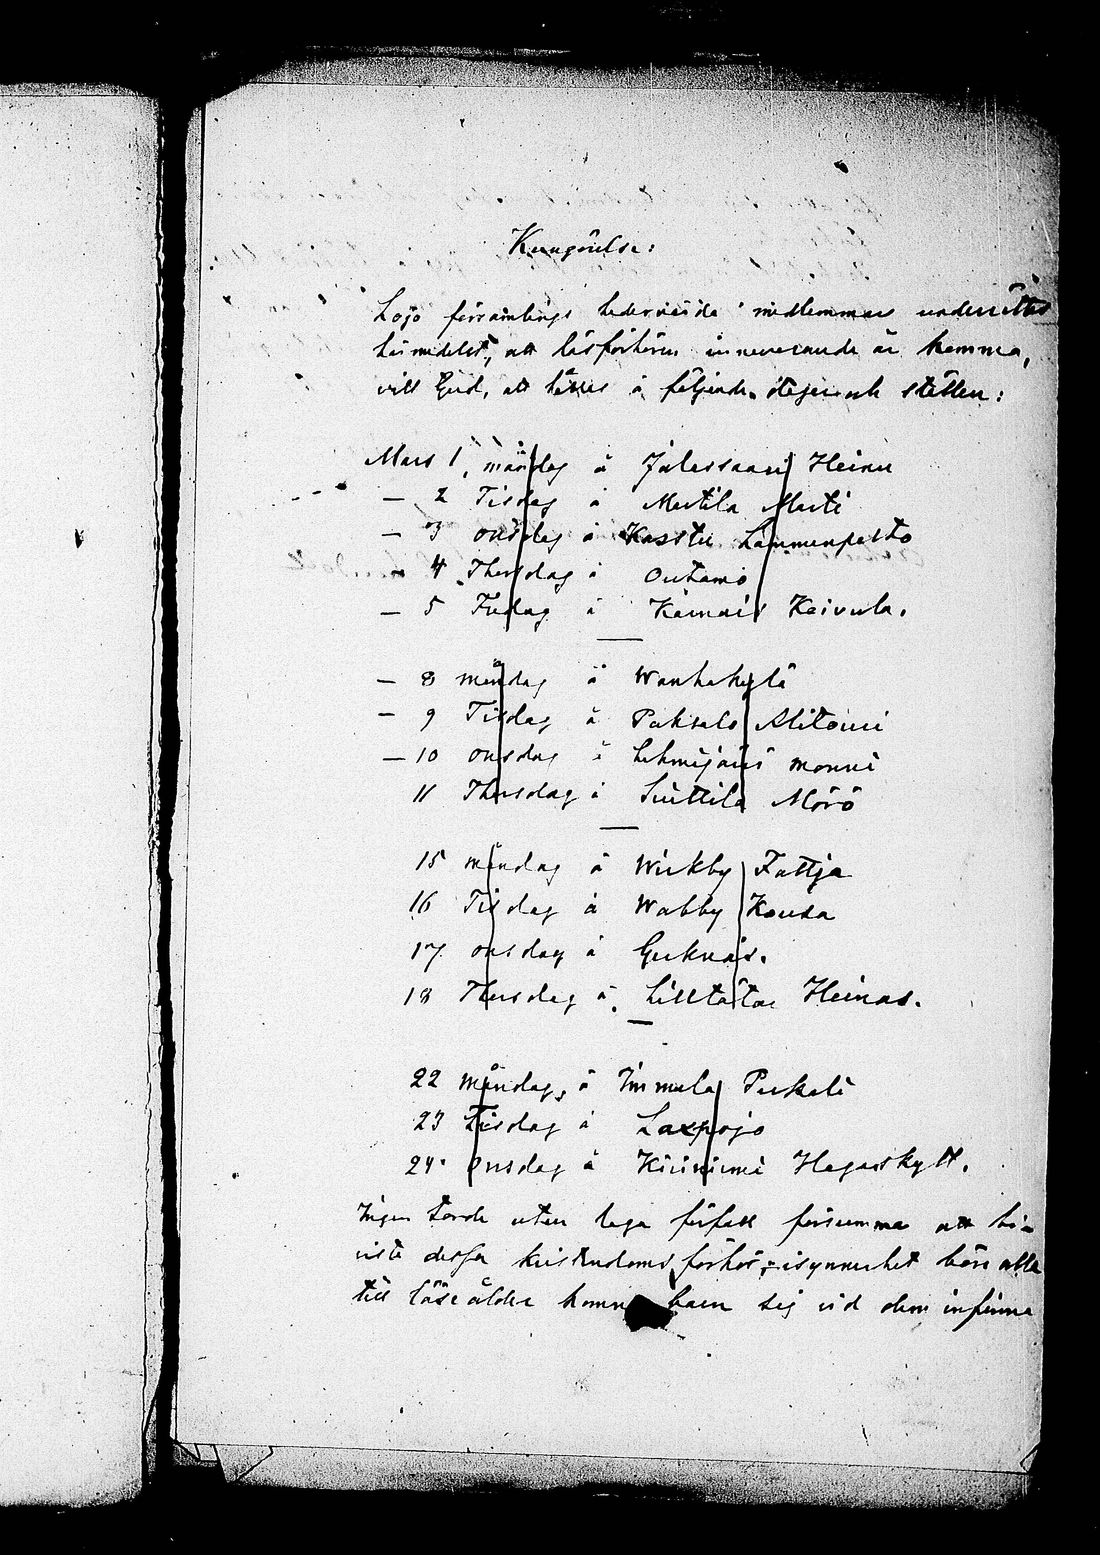 Kungörelse:
Lojo församlings hedervärda medlemmar underrättas
härmedelst, att läsförhören innevarande år komma,
vill Gud, att hållas å följande dagar och ställen:
Mars 1, måndag å Jalassaari Heinu
— 2 Tisdag å Martila Marti
— 3 onsdag å Lammenpelto
— 4 Thorsdag å Outamo
— 5 Fredag å Koivula.
— 8 måndag å Wanhakylä
— 9 Tisdag å Paksalo Alitouri
— 10 onsdag å Lehmijärvi monni
11 Thorsdag å Suittila Mörö
15 måndag å Wirkby Fattja
16 Tisdag å Wabby Kouda
17 onsdag å Gerknäs.
18 Thorsdag å Lilltötar Heinas.
22 måndag, å Immula Perkali
23 Tisdag å Laxpojo
24 onsdag å Kirkniemi Hagaskytt.
Ingen torde utan laga förfall försumma att bi-
vista dessa kristendoms förhör, isynnerhet böra alla
till läse ålder komna barn sig vid dem infinna